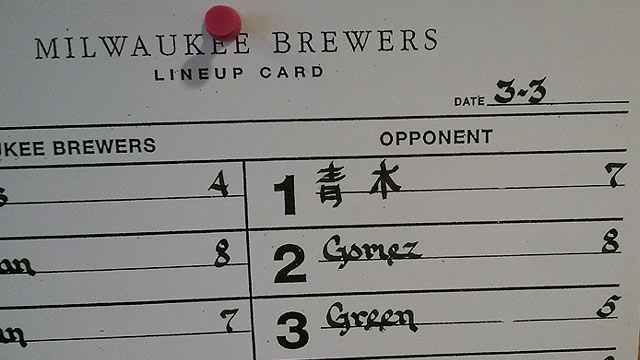 MILWAUKEE BREWERS
LINEUP CARD
DATE 3-3
KEE BREWERS OPPONENT
4 1 青木 7
an 8 2 Gomez 8
n 7 3 Green 5